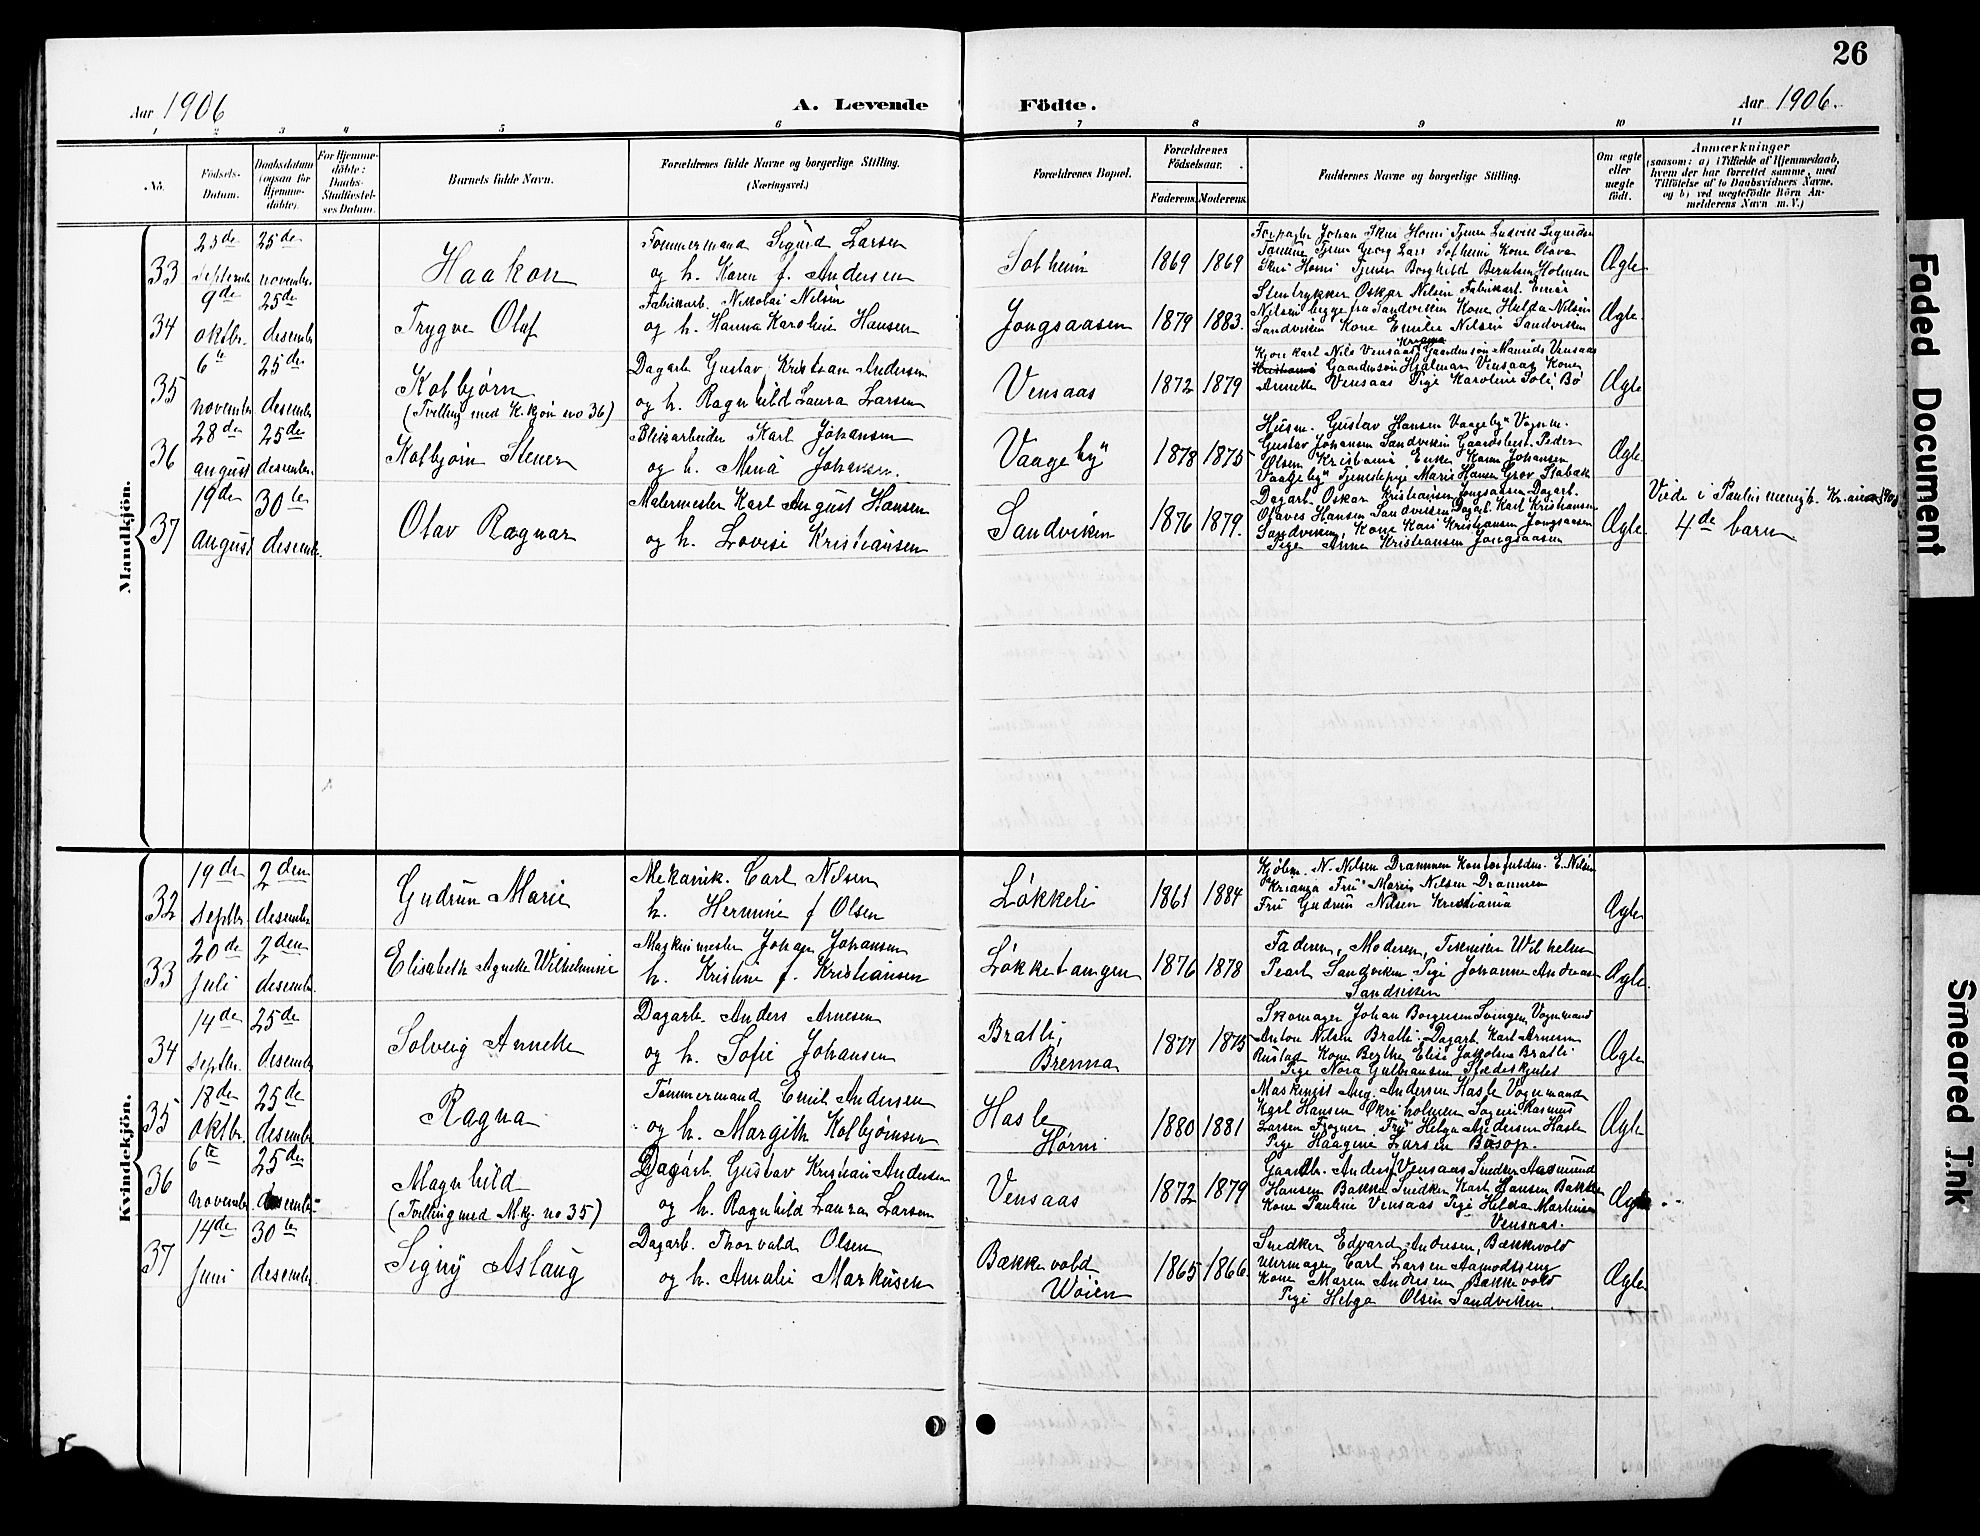 26
Aar 1906
A. Levende Födte.
Aar 1906.
1 2 3 4 5 6 7 8 9 10 11
No.
Födsels-Datum.
Daabsdatum (ogsaa for Hjemme-döbte).
For Hjemme-döbte: Daabs-Stadfæstel-ses Datum.
Barnets fulde Navn.
Forældrenes fulde Navne og borgerlige Stilling. (Næringsvei.)
Forældrenes Bopæl.
Forældrenes Födselsaar.
Faderens. Moderens.
Faddernes Navne og borgerlige Stilling.
Om ægte eller uægte födt.
Anmærkninger
(saasom: a) i Tilfælde af Hjemmedaab,
hvem der har forrettet samme, med
Tilföielse af to Daabsvidners Navne,
og b) ved uægtefödte Börn An-
melderens Navn m. V.)
Mandkjön.
33
23de septembr
25de november
Haakon
Tømmermand Sigurd Larsen
og h. Karen f. Andersen
Solheim
1869 1869
Forpagter Johan Skui Horni Tjener Ludvik Sigurdsen
Tanum Tjener Georg Lars Solheim Kone Olava
Skui Horni Tjener Borghild Berntsen Holmen
Ægte
34
9de oktbr.
25de desembr
Trygve Olaf
Fabrikarb. Nikolai Nilsen
og h. Hanna Karoline Hansen
Jongsaasen
1879 1883.
Stentrykker Oskar Nilsen Fabrikarb. Einar
Nilsen begge fra Sandviken Kone Hulda Nilsen
Sandviken Kone Emilie Nilsen Sandviken
Ægte.
35
6te november
25de desember
Kolbjørn
(Tvilling med K.kjøn no 36)
Dagarb Gustav Kristian Andersen
og h. Ragnhild Laura Larsen
Vensaas
1872 1879
Krania
Kjørekarl Nils Vensaas Gaardmsøn Maurids Vensaas
Kristiania Gaardmsøn Hjalmar Vensaas Kone
Annette Vensaas Pige Karoline Solé Bø
Ægte
36
28de august
25de desember.
Kolbjørn Stener
Blikarbeider Karl Johansen
og h. Mina Johansen.
Vaageby"
1878 1875
Husm. Gustav Hansen Vaageby" Vognm.
Gustav Johansen Sandviken Gaardsbest. Peder
Olsen Kristiania, Enke Karen Johansen
Vaageby" Tjenestepige Maria Hansen Grav Stabæk
Ægte.
37
19de august
30te desembr.
Olav Ragnar
Malermester Karl August Hansen
og h. Lovise Kristiansen
Sandviken
1876 1879.
Dagarb. Oskar Kristiansen Jongsaasen Dagarb.
Olaves Hansen Sandviken Dagarb. Karl Kristiansen
Sandviken, Kone Kari Kristiansen Jongsaasen
Pige Anna Kristiansen Jongsaasen
Ægte.
Viede i Paulus menigh. Kr.ania
4de barn
Kvindekjön.
32
19de septbr.
2den desember
Gudrun Marie
Mekanik. Carl Nilsen
h. Hermine f Olsen
Løkkeli
1861 1884
Kjøbm. N. Nilsen Drammen Kontorfuldm. E. Nilsen
Krania Fru Marie Nilsen Drammen
Fru Gudrun Nilsen Kristiania
Ægte
33
20de juli
2den desember.
Elisabeth Agnete Wilhelmine
Maskinmester Johan Johansen
h. Kristine f. Kristiansen
Løkketangen
1876 1878
Faderen, Moderen, Tekniker Wilhelm
Pearl Sandviken Pige Johanne Andersen
Sandviken
Ægte.
34
14de septbr.
25de desembr
Solveig Annette
Dagarb. Anders Arnesen
og h. Sofie Johansen
Bratli,
Brenna
1877 1875
Skomager Johan Borgersen Svingen Vognmand
Anton Nilsen Bratli. Dagarb. Karl Arnesen
Rustad Kone Berthe Elise Jakobine Bratli
Pige Nora Gulbransen Stedeskjulet
Ægte
35
18de oktbr.
25de desembr
Ragna
Tømmermand Emil Andersen
og h. Margith Kolbjørnsen
Hasle
Horni
1880 1881
Maskinist Aug. Andersen Hasle Vognmand
Karl Hansen Økriholmen Rasmus
Larsen Frogner, Fru Helga Andersen Hasle
Pige Haagine Larsen
Ægte
36
6te november
25de desembr
Magnhild
(Tvilling med M.kj. no 35)
Dagarb. Gustav Kristian Andersen
og h. Ragnhild Laura Larsen
Vensaas
1872 1879
Gaardbr. Anders Vensaas Snedker Aasmund
Hansen Bakken Snedker Karl Hansen Bakken
Kone Pauline Vensaas Pige Hilda Martinsen
Vensaas.
Ægte
37
14de juni
30te desember.
Signy Aslaug
Dagarb. Thorvald Olsen
og h. Amalie Markusen
Bækkevold
Wøien
1865 1866.
Snedker Edvard Andresen, Bækkevold
Uhrmager Carl Larsen Aamodteng
Kone Maren Andresen Bækkevold
Pige Helga Olsen Sandviken.
Ægte
Faded Document
Smeared Ink